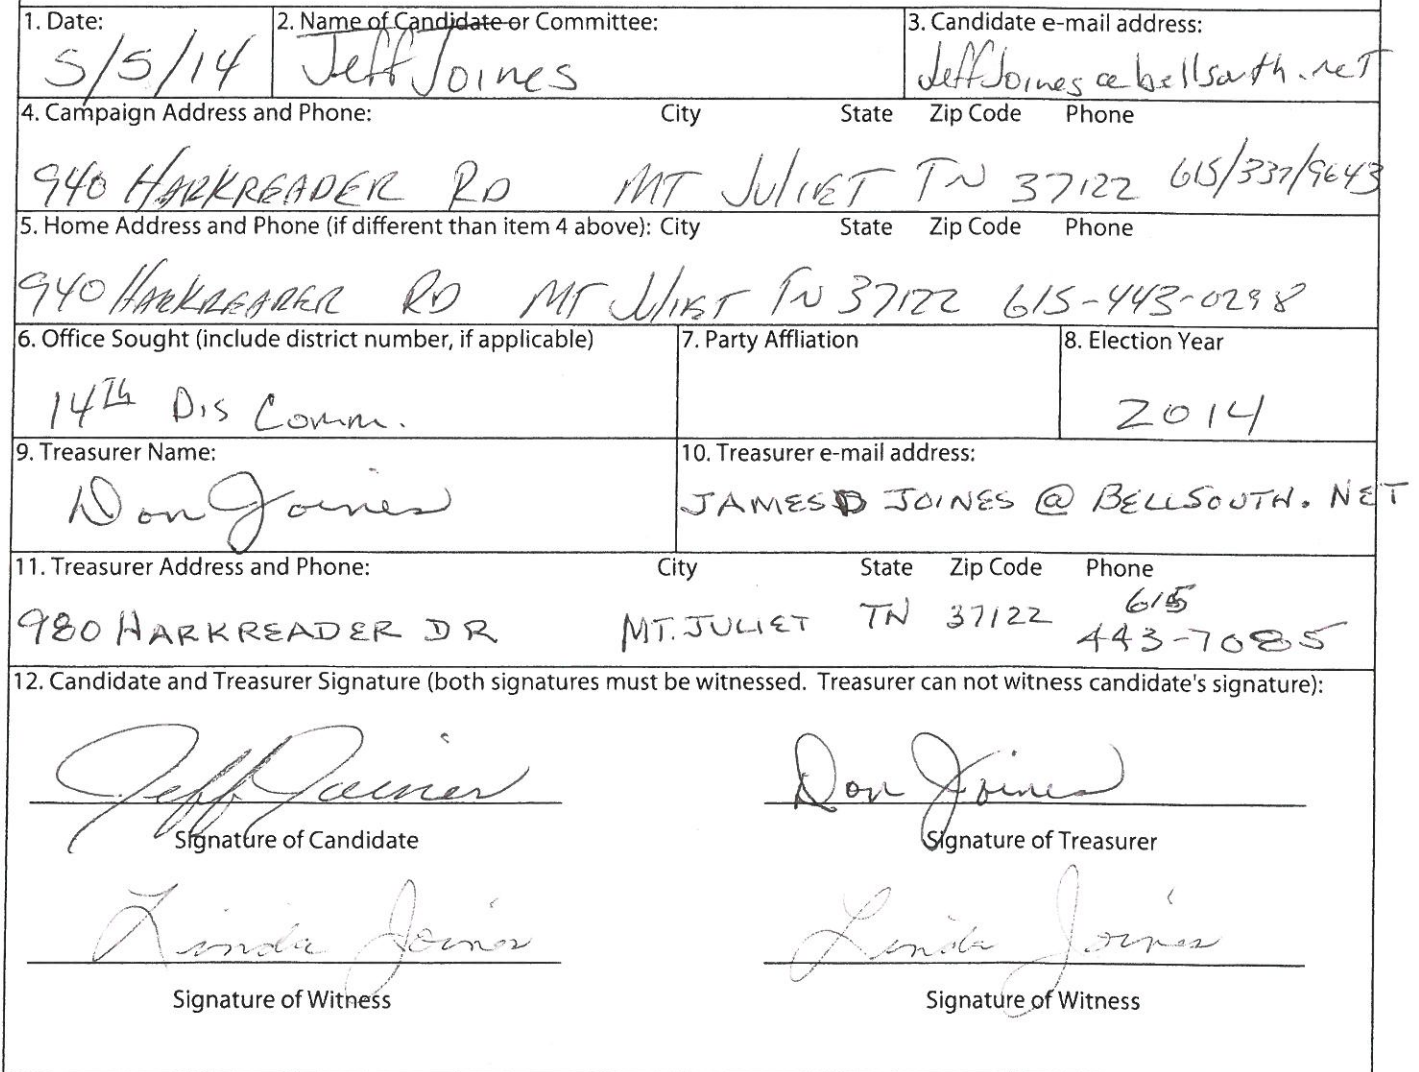 1. Date: 2. Name of Candidate or Committee: 3. Candidate e-mail address:
5/5/14 Jeff Joines JeffJoines@bellsouth.net
4. Campaign Address and Phone: City State Zip Code Phone
940 HARKREADER RD MT JULIET TN 37122 615/337/9643
5. Home Address and Phone (if different than item 4 above): City State Zip Code Phone
940 HARKREADER RD MT JULIET TN 37122 615-443-0298
6. Office Sought (include district number, if applicable) 7. Party Affliation 8. Election Year
14Th Dis Comm. 2014
9. Treasurer Name: 10. Treasurer e-mail address:
Don Joines JAMESDJOINES@BELLSOUTH.NET
11. Treasurer Address and Phone: City State Zip Code Phone
615
980 HARKREADER DR MT. JULIET TN 37122 443-7085
12. Candidate and Treasurer Signature (both signatures must be witnessed. Treasurer can not witness candidate's signature):
Jeff Joines Don Joines
Signature of Candidate Signature of Treasurer
Linda Joines Linda Joines
Signature of Witness Signature of Witness